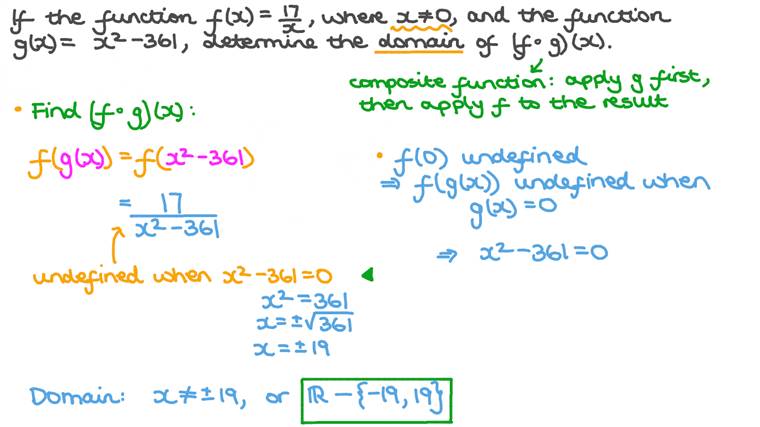 If the function f(x) = 17/x, where x ≠ 0, and the function
g(x) = x² − 361, determine the domain of (f ∘ g)(x).
composite function: apply g first,
then apply f to the result
• Find (f ∘ g)(x):
f(g(x)) = f(x² − 361)
= 17/(x² − 361)
undefined when x² − 361 = 0
x² = 361
x = ±√361
x = ±19
• f(0) undefined
⇒ f(g(x)) undefined when
g(x) = 0
⇒ x² − 361 = 0
Domain: x ≠ ±19, or ℝ − {−19, 19}